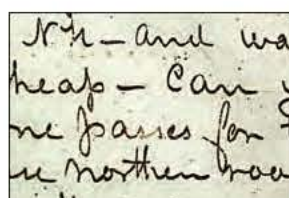 N Y - and wa
heap - Can
ne passes for
ne northern roa